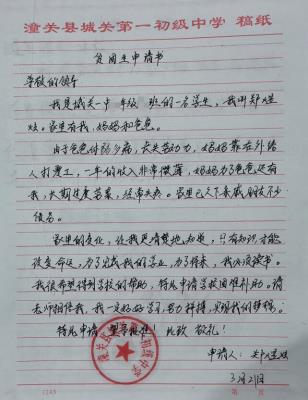 潼关县城关第一初级中学 稿纸
贫困生申请书
尊敬的领导
我是城关一中 年级 班的一名学生，我叫郑
家里有我，妈妈和爸爸。
由于爸爸体弱多病，丧失劳动力，妈妈靠在外给
人打零工，一年的收入非常微薄，妈妈为了爸爸还有
我，长期过度劳累，经常失眠。家里已欠下亲戚朋友不少
债务。
家里的变化，让我更清楚地知道，只有知识才能
改变命运，为了完成我的学业，为了将来，我必须读书。
我很希望得到学校的帮助，特此申请学校困难补助。请
老师相信我，我一定好好学习，努力拼搏，实现我的梦想。
特此申请 望学校批准！此致 敬礼！
申请人：郑
3月21日